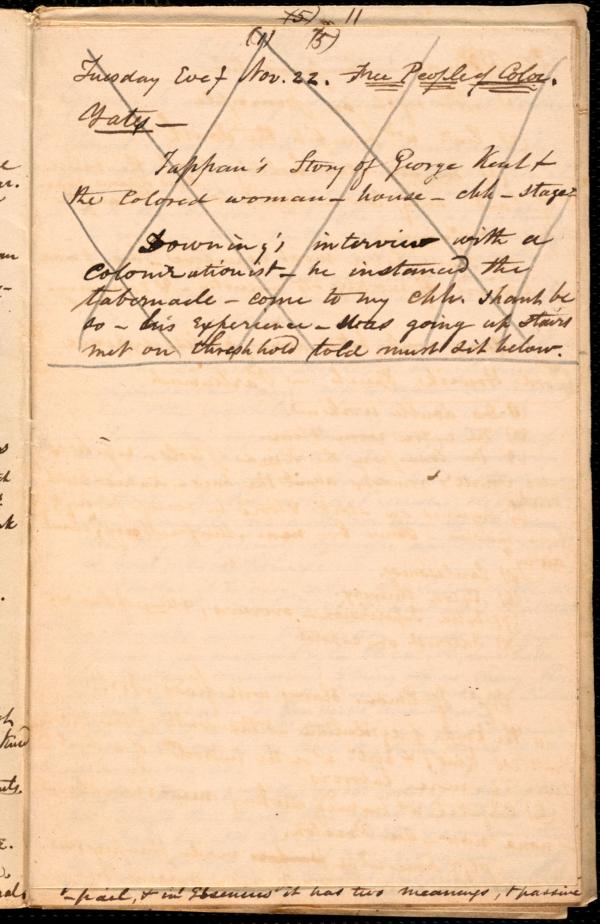 (5) 11
(1) (5)
Tuesday Eveg Nov. 22. Free People of Color.
Yates —
Tappan's Story of George Kent &
the Colored woman — house — chh — stage
Downing's interview with a
Colonizationist — he instanced the
tabernacle — come to my chh. shant be
so — his experience — was going up stairs
met on threshhold told must sit below.
it has two meanings, & passive